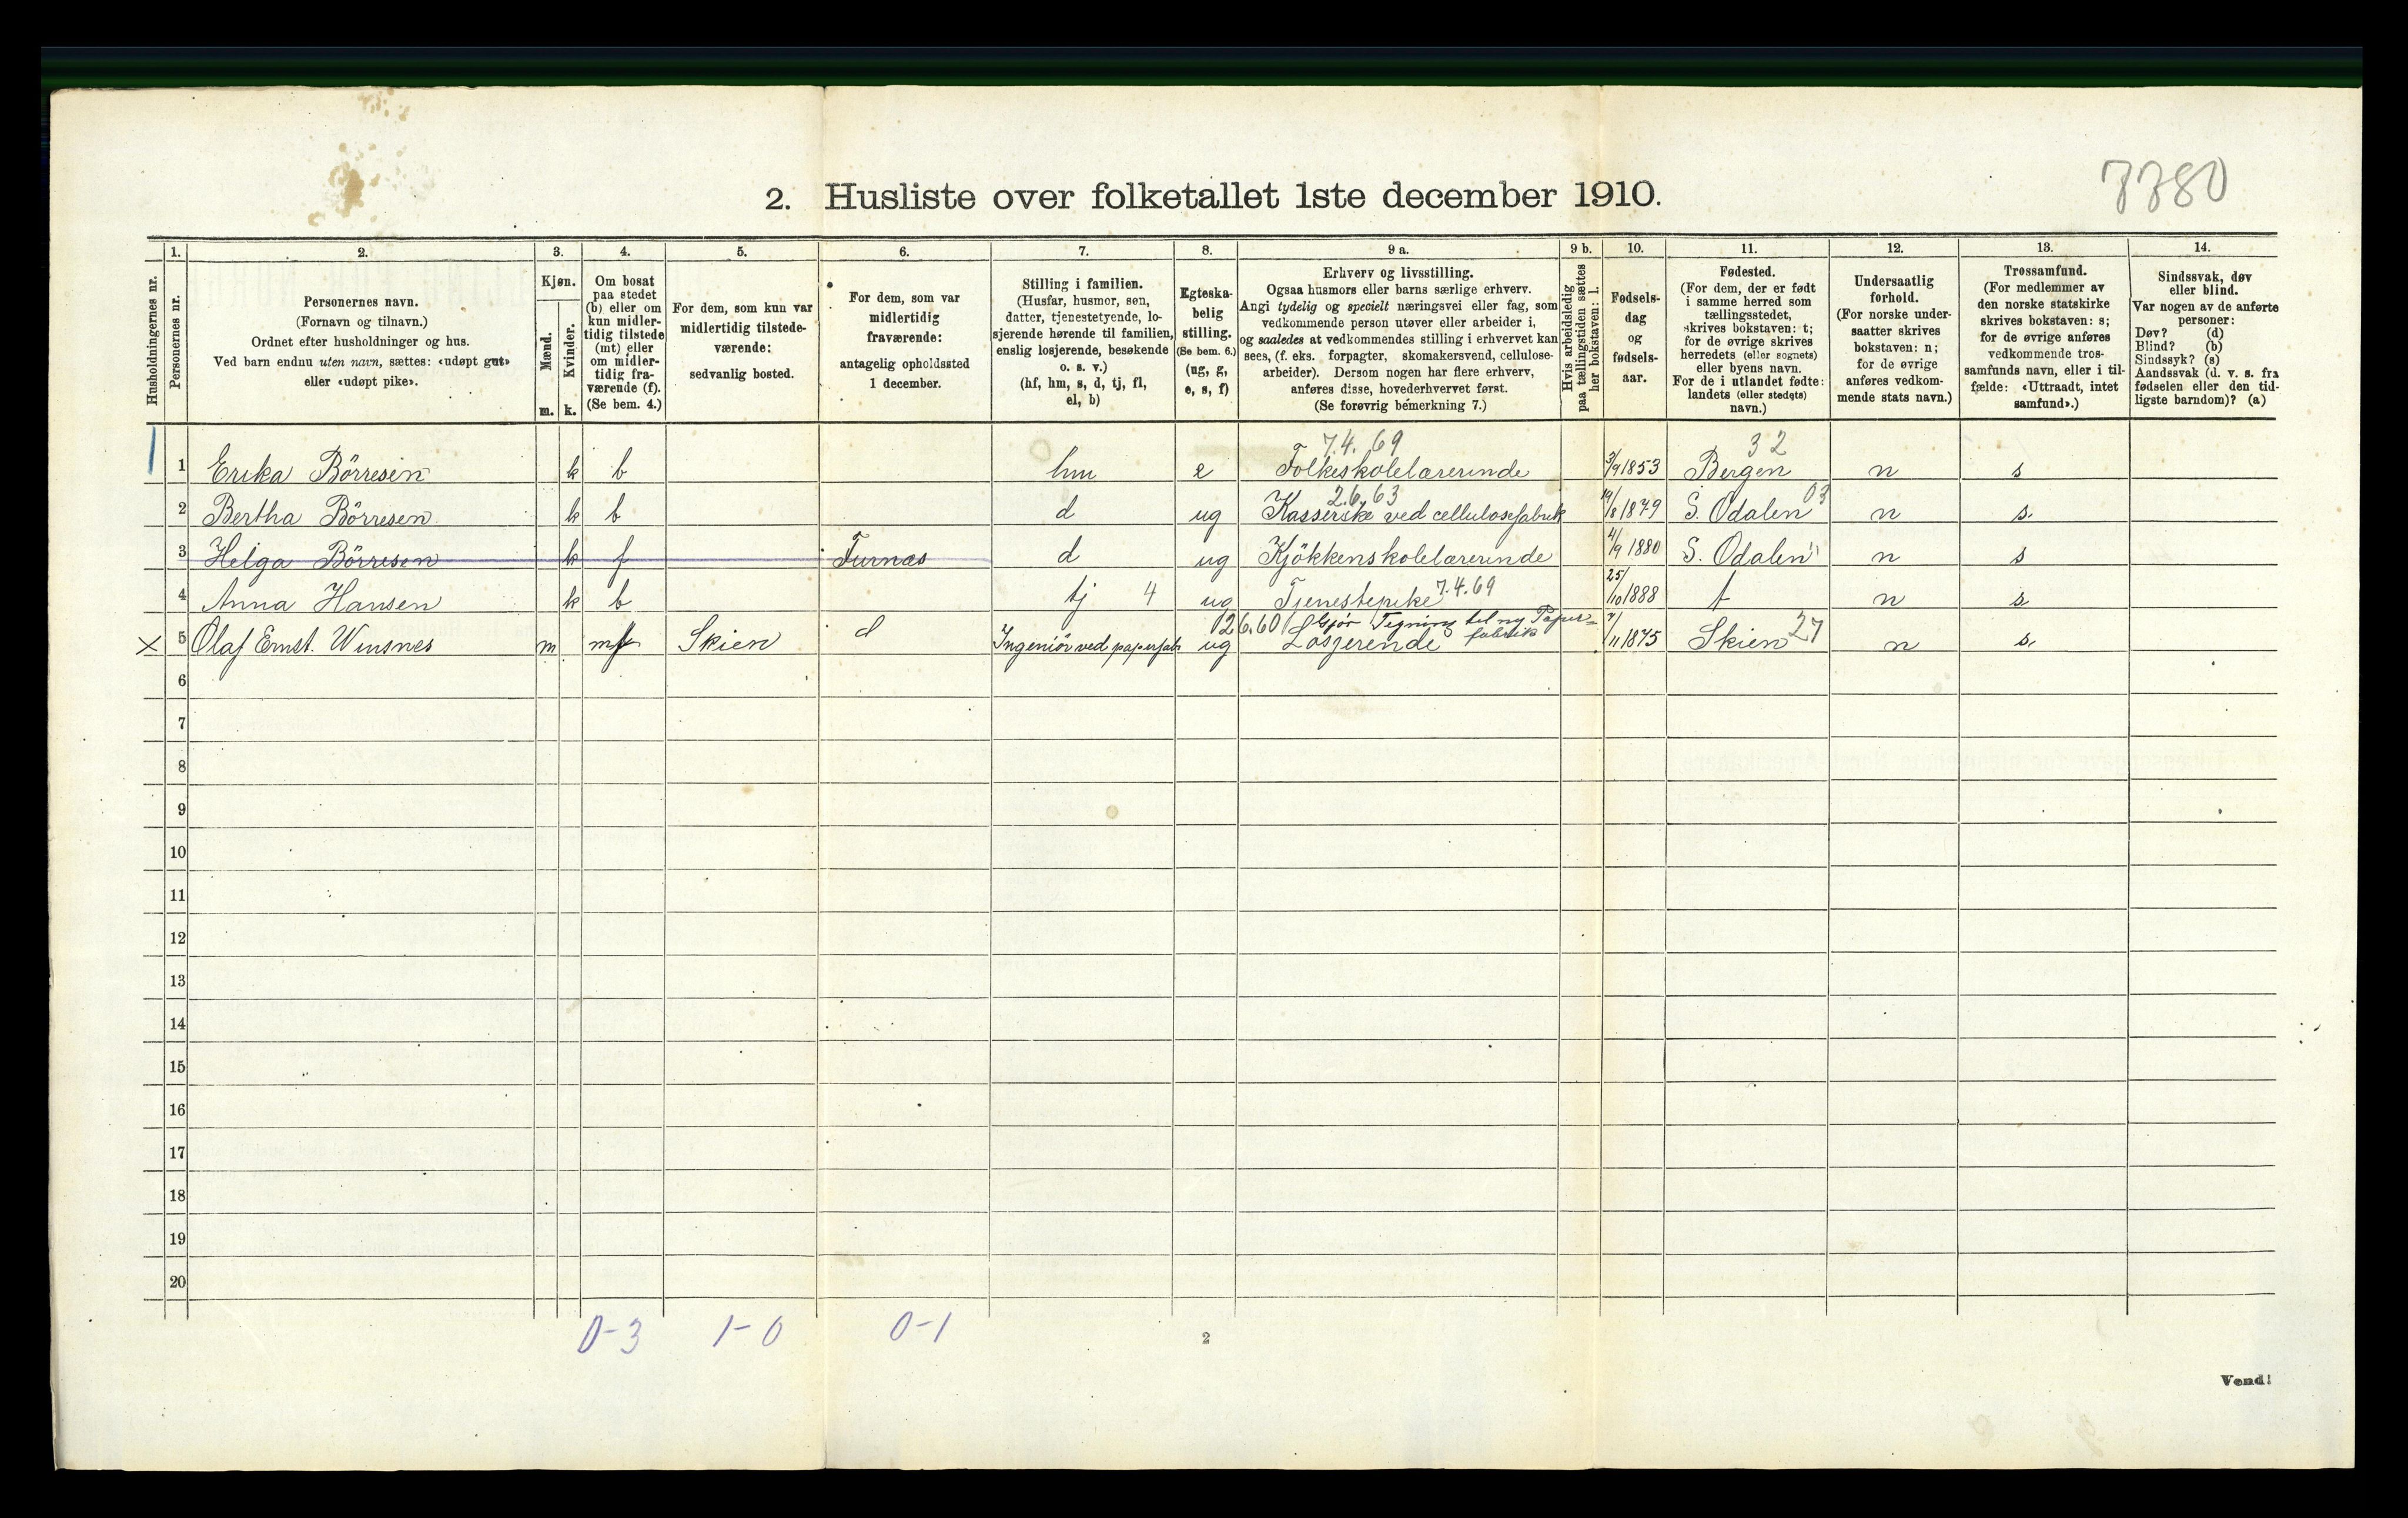 7780
2. Husliste over folketallet 1ste december 1910.
1. 2. 3. 4. 5. 6. 7. 8. 9 a. 9 b. 10. 11. 12. 13. 14.
Husholdningernes nr.
Personernes nr.
Personernes navn.
(Fornavn og tilnavn.)
Ordnet efter husholdninger og hus.
Ved barn endnu uten navn, sættes: «udøpt gut»
eller «udøpt pike».
Kjøn.
Mænd.
Kvinder.
m. k.
Om bosat
paa stedet
(b) eller om
kun midler-
tidig tilstede
(mt) eller
om midler-
tidig fra-
værende (f).
(Se bem. 4.)
For dem, som kun var
midlertidig tilstede-
værende:
sedvanlig bosted.
For dem, som var
midlertidig
fraværende:
antagelig opholdssted
1 december.
Stilling i familien.
(Husfar, husmor, søn,
datter, tjenestetyende, lo-
sjerende hørende til familien,
enslig losjerende, besøkende
o. s. v.)
(hf, hm, s, d, tj, fl,
el, b)
Egteska-
belig
stilling.
(Se bem. 6.)
(ug, g,
e, s, f)
Erhverv og livsstilling.
Ogsaa husmors eller barns særlige erhverv.
Angi tydelig og specielt næringsvei eller fag, som
vedkommende person utøver eller arbeider i,
og saaledes at vedkommendes stilling i erhvervet kan
sees, (f. eks. forpagter, skomakersvend, cellulose-
arbeider). Dersom nogen har flere erhverv,
anføres disse, hovederhvervet først.
(Se forøvrig bemerkning 7.)
Hvis arbeidsledig
paa tællingstiden sættes
her bokstaven: l.
Fødsels-
dag
og
fødsels-
aar.
Fødested.
(For dem, der er født
i samme herred som
tællingsstedet,
skrives bokstaven: t;
for de øvrige skrives
herredets (eller sognets)
eller byens navn.
For de i utlandet fødte:
landets (eller stedets)
navn.)
Undersaatlig
forhold.
(For norske under-
saatter skrives
bokstaven: n;
for de øvrige
anføres vedkom-
mende stats navn.)
Trossamfund.
(For medlemmer av
den norske statskirke
skrives bokstaven: s;
for de øvrige anføres
vedkommende tros-
samfunds navn, eller i til-
fælde: «Uttraadt, intet
samfund».)
Sindssvak, døv
eller blind.
Var nogen av de anførte
personer:
Døv? (d)
Blind? (b)
Sindssyk? (s)
Aandssvak (d. v. s. fra
fødselen eller den tid-
ligste barndom)? (a)
7.4.69 32
1 1 Erika Börresen k b hm e Folkeskolelærerinde 3/9 1853 Bergen n s
2.6.63 03
2 Bertha Börresen k b d ug Kasserske ved cellulosefabrik 19/8 1879 S. Odalen n s.
3 Helga Börresen k f Furnæs d ug Kjökkenskolelærerinde 4/9 1880 S. Odalen n s
4 Anna Hansen k b tj 4 ug Tjenestepike 7.4.69 25/10 1888 t n s
26.60 Gjør Tegning til ny Papir=
fabrik
X 5 Olaf Ernst. Winsnes m mt Skien d Ingeniör ved papirfab ug Losjerende 7/11 1875 Skien 27 n s.
6
7
8
9
10
11
12
13
14
15
16
17
18
19
20
0-3 1-0 0-1
2
Vend!